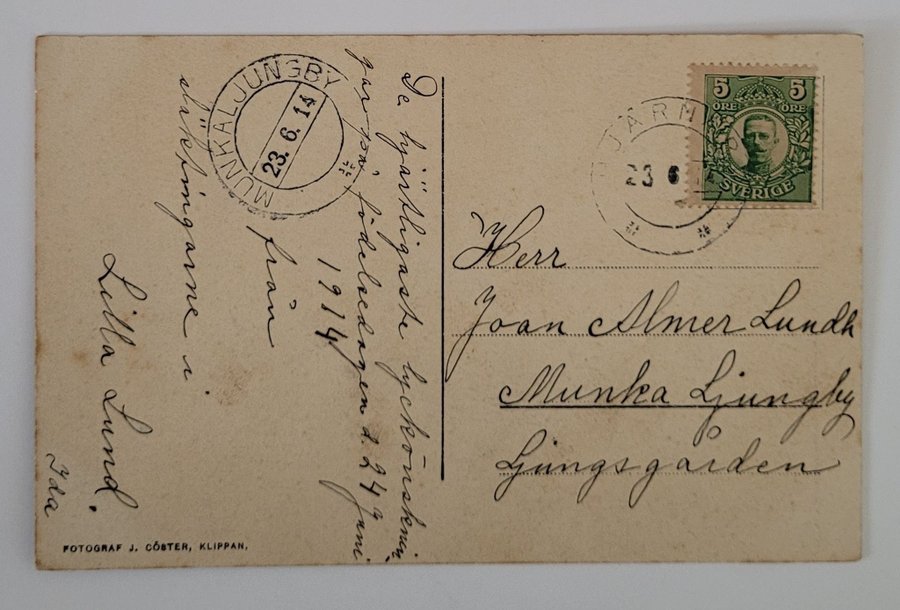 De hjärtligaste lyckönsknin
gar på födelsedagen d. 24 Juni
1914
från
släktingarne i
Lilla Lund.
Ida
MUNKALJUNGBY
23.6.14
FOTOGRAF J. CÖSTER, KLIPPAN.
5 5
ÖRE ÖRE
SVERIGE
23 6
Herr
Joan Almer Lundh
Munka Ljungby
Ljungsgården